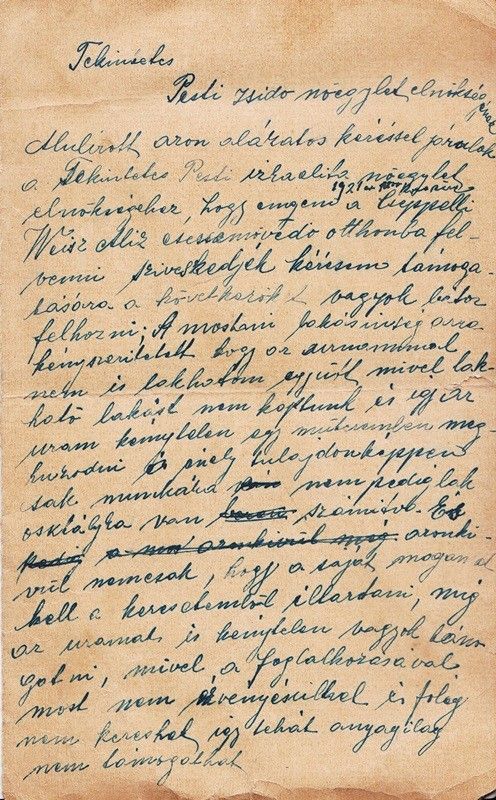 Tekintetes
Pesti zsido nőegylet elnökség
Alulirott azon alázatos kéréssel járulok
a Tekintetes Pesti izraelita nőegylet
1921
elnökségéhez, hogy engem a Cseppelli
Weisz Aliz csecsemővédo otthonba fel-
venni sziveskedjék kérésem támoga-
tására a következőket vagyok bátor
felhozni; A mostani lakásinség arra
kényszeritett hog az urammal
nem is lakhatom együtt mivel lak-
ható lakást nem kaptunk és igj az
uram kénytelen egy műteremben meg-
huzodni és mely tulajdonképpen
csak munkára nem pedig lak
oskiálgka van számitva. És
a azonki-
vül nemcsak, hogy a saját magam
kell a keresetemből eltartani, még
az uramat is kénytelen vagyok támo
gatni, mivel a foglalkozásával
most nem érvényesülhet és főleg
nem kereshet igy tehát anyagilag
nem támogathat